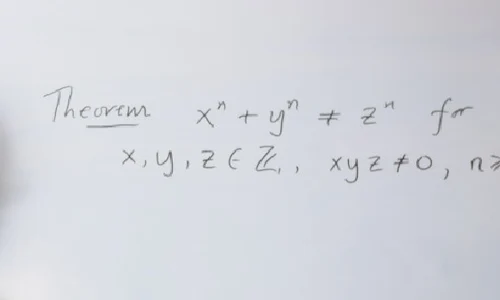 Theorem xⁿ + yⁿ ≠ zⁿ for
x, y, z ∈ ℤ, xyz ≠ 0, n ≥